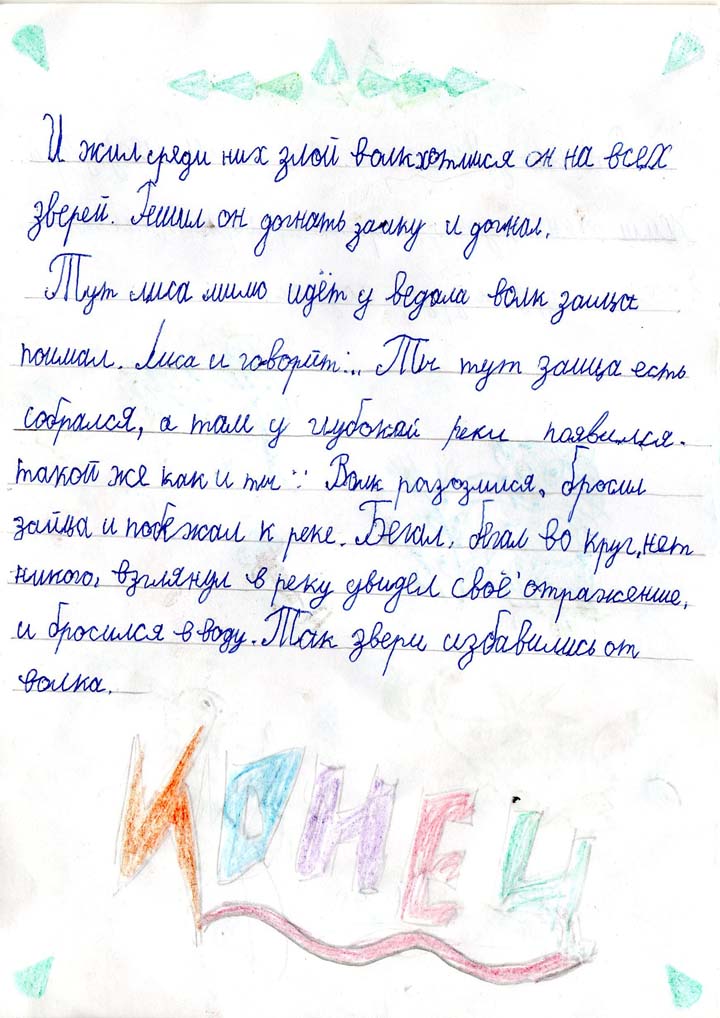 И жил среди них злой волк хотился он на всех
зверей. Решил он догнать заику и догнал.
Тут лиса мимо идёт у ведала волк заица
поимал. Лиса и говорит:.. Ты тут заица есть
собрался, а там у глубокой реки появился.
такой же как и ты :: Волк разозлился, бросил
зайца и побежал к реке. Бегал, бегал во круг, нет
никого, взглянул в реку увидел своё отражение,
и бросился в воду. Так звери избавились от
волка.
КОНЕЦ